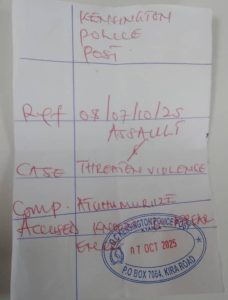 KENSINGTON
POLICE
POST.
Ref 08/07/10/25
ASSAULT
&
CASE THREATEN VIOLENCE
Comp.
Accused
KENSINGTON POLICE POST
07 OCT 2025
P.O BOX 7064, KIRA ROAD